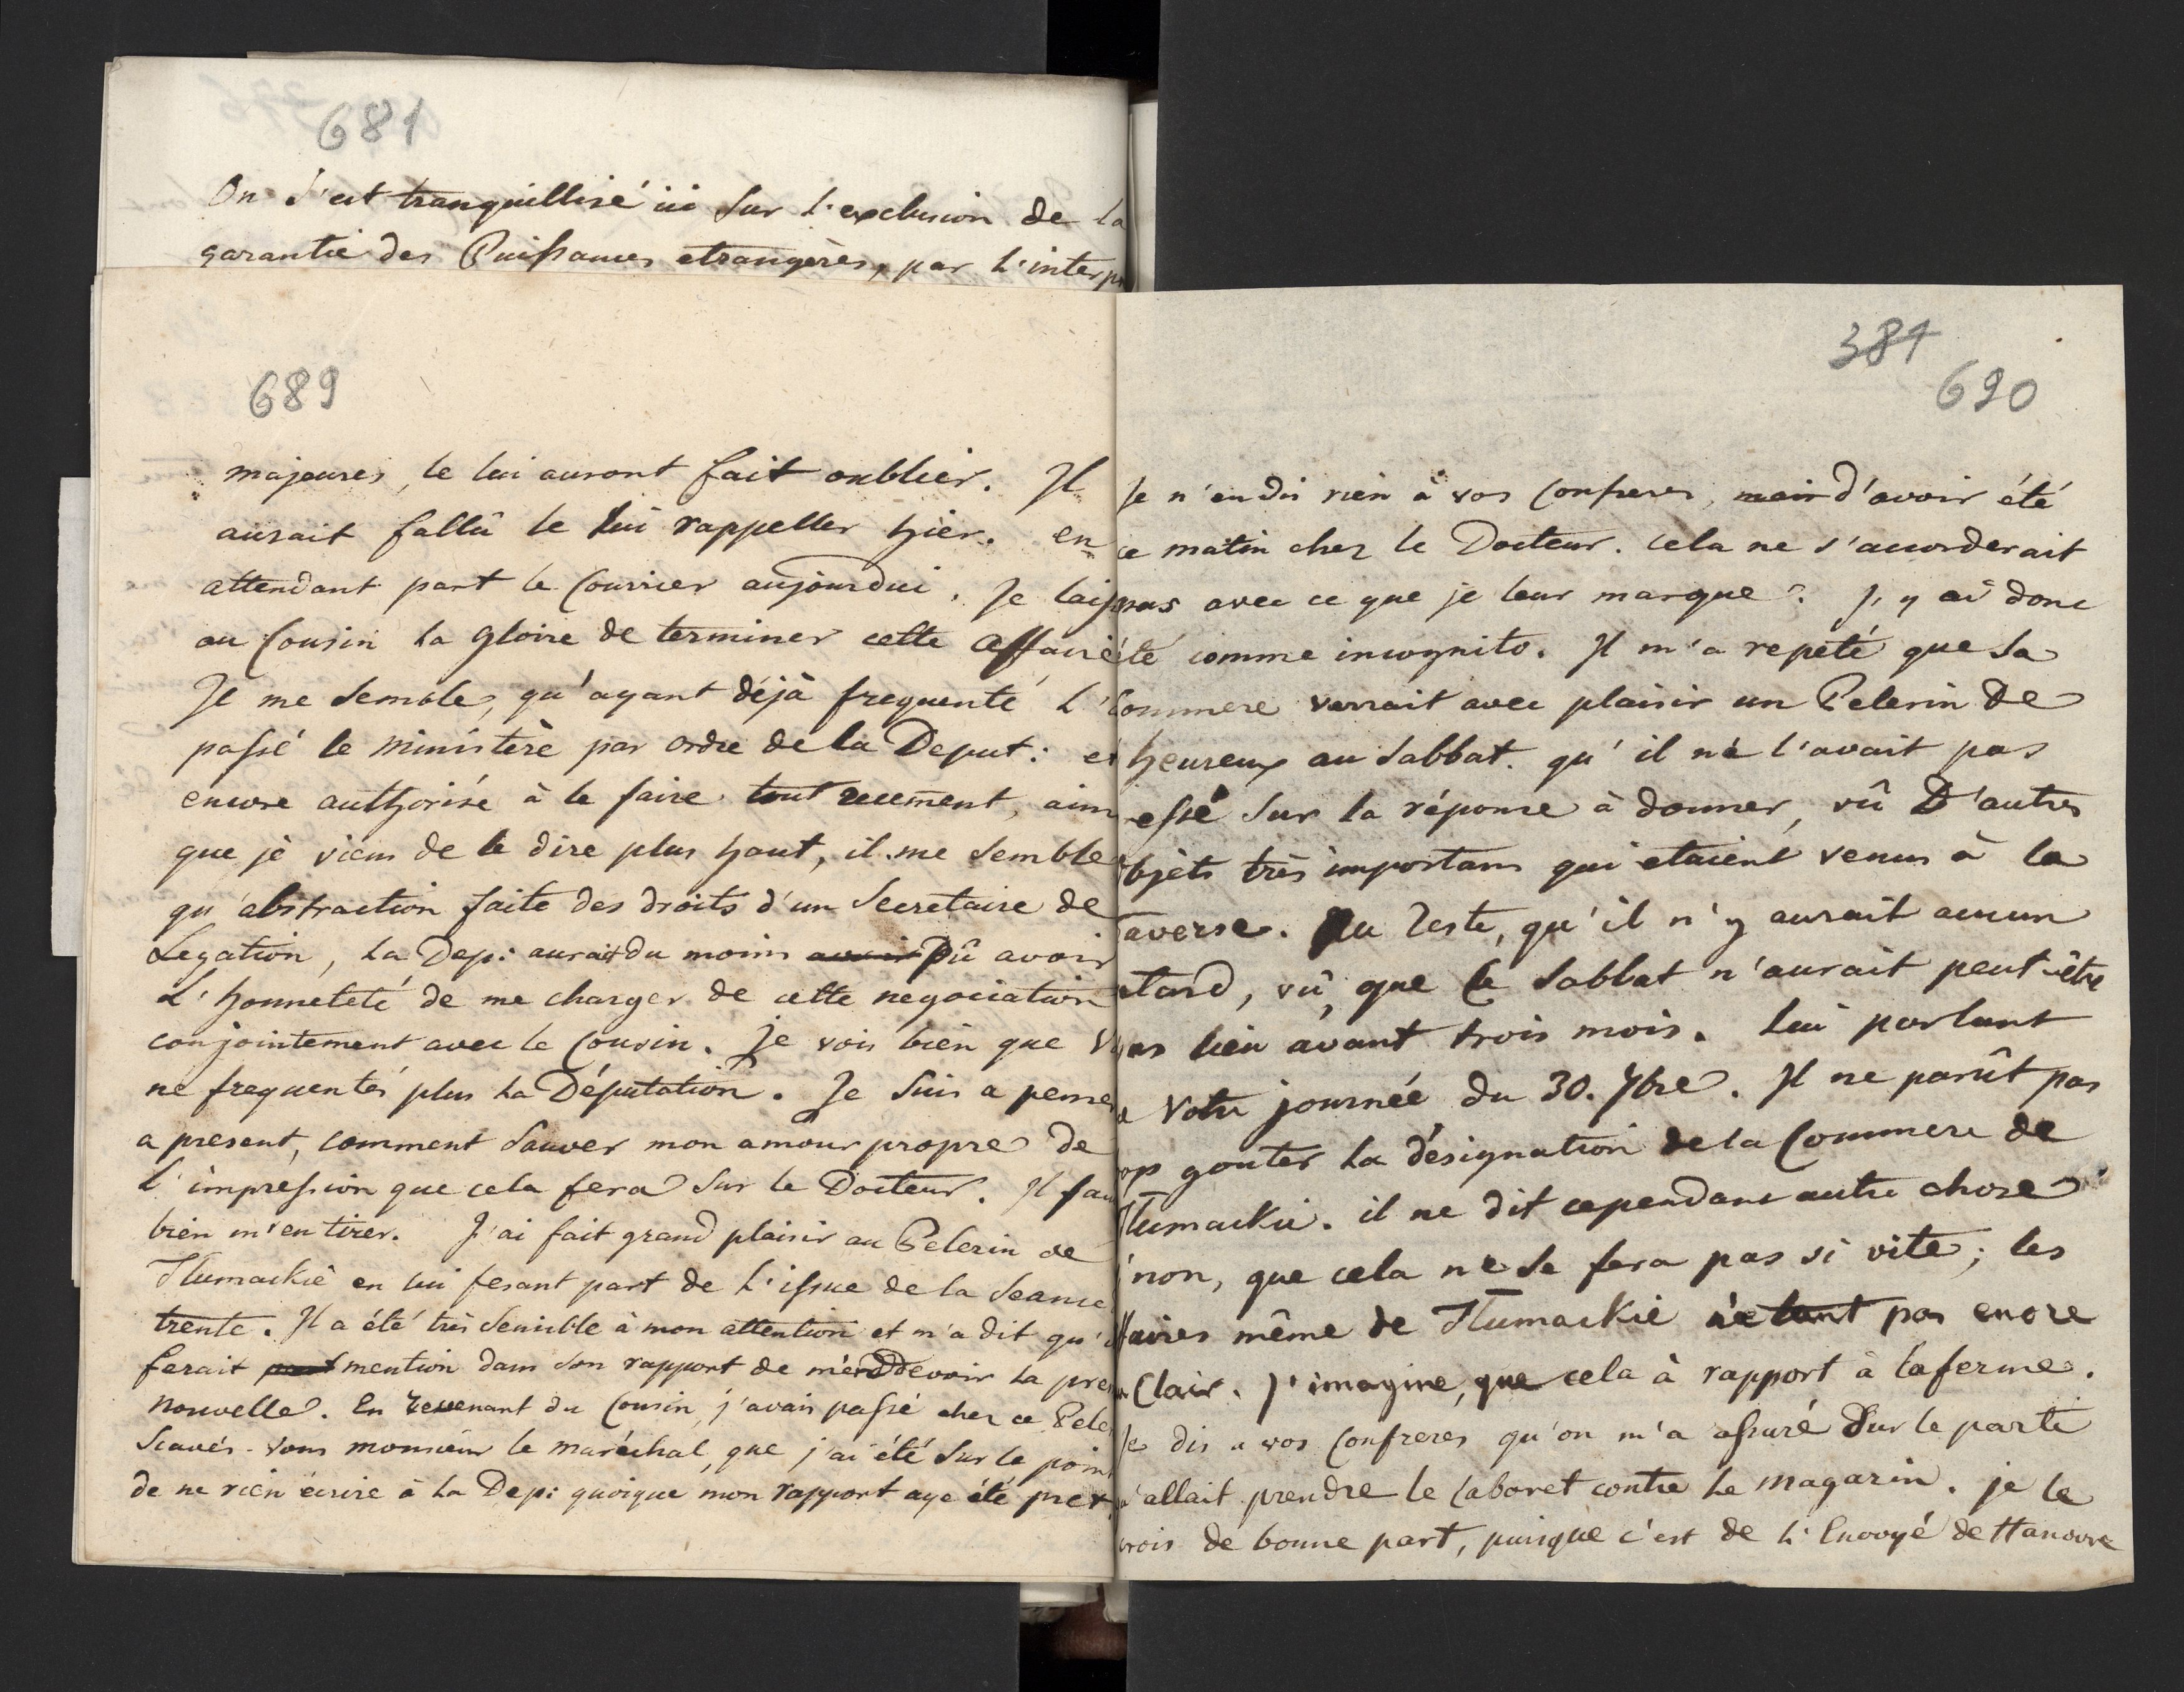 681
On s'est tranquillisé ici sur l'exclusion de la
garantie des Puissances etrangères, par l'interp
689
majeures, le lui auront fait oublier. Il
aurait fallû le lui rappeller hier. en
attendant part le Courrier aujourdui. Je laiss
au Cousin la gloire de terminer cette affaire
Il me semble, qu'ayant déjà frequenté l'
passé le ministère par ordre de la Deput: et
encore authorisé à le faire tout recement, ains
que je viens de le dire plus haut, il me semble
qu'abstraction faite des droits d'un Secretaire de
Legation, la Dep: aurait du moins avoir pû avoir
l'honneteté de me charger de cette negociation
conjointement avec le Cousin. je vois bien que v
ne frequentés plus la Députation. Je suis a penser
a present, comment sauver mon amour propre de
l'impression que cela fera sur le Docteur. Il fau
bien m'en tirer. J'ai fait grand plaisir au Pelerin de
Tlumackie en lui fesant part de l'issue de la Seance
trente. Il a été très sensible à mon attention et m'a dit qu'i
ferait mention dans son rapport de m'en devoir la pre
nouvelle. En revenant du Cousin, j'avais passé chez ce Pele
Scavés-vous monsieur le maréchal, que j'ai été sur le poin
de ne rien écrire à la Dep: quoique mon rapport aye été pret,
384
690
Je n'en dis rien à vos Confreres, mais d'avoir été
ce matin chez le Docteur. cela ne s'accorderait
pas avec ce que je leur marque. J'y ai donc
été comme incognito. Il m'a repeté que sa
Commere verrait avec plaisir un Pelerin de
heureux au Sabbat. qu'il ne l'avait pas
essé sur la réponse à donner, vû d'autres
bjets très importans qui etaient venus à la
raverse. Au reste, qu'il n'y aurait aucun
etard, vû, que le Sabbat n'aurait peut-être
pas lieu avant trois mois. Lui parlant
e Votre journée du 30. 7bre. Il ne parût pas
rop gouter la désignation de la Commere de
Tlumackie. il ne dit cependant autre chose
i'non, que cela ne se fera pas si vite; les
ffaires même de Tlumackie n'etant pas encore
u Clair. J'imagine, que cela à rapport à la ferme.
Je dis a vos Confreres qu'on m'a assuré sur le parti
u'allait prendre le Cabaret contre le magazin. je le
crois de bonne part, puisque c'est de l'Envoyé de Hanovre